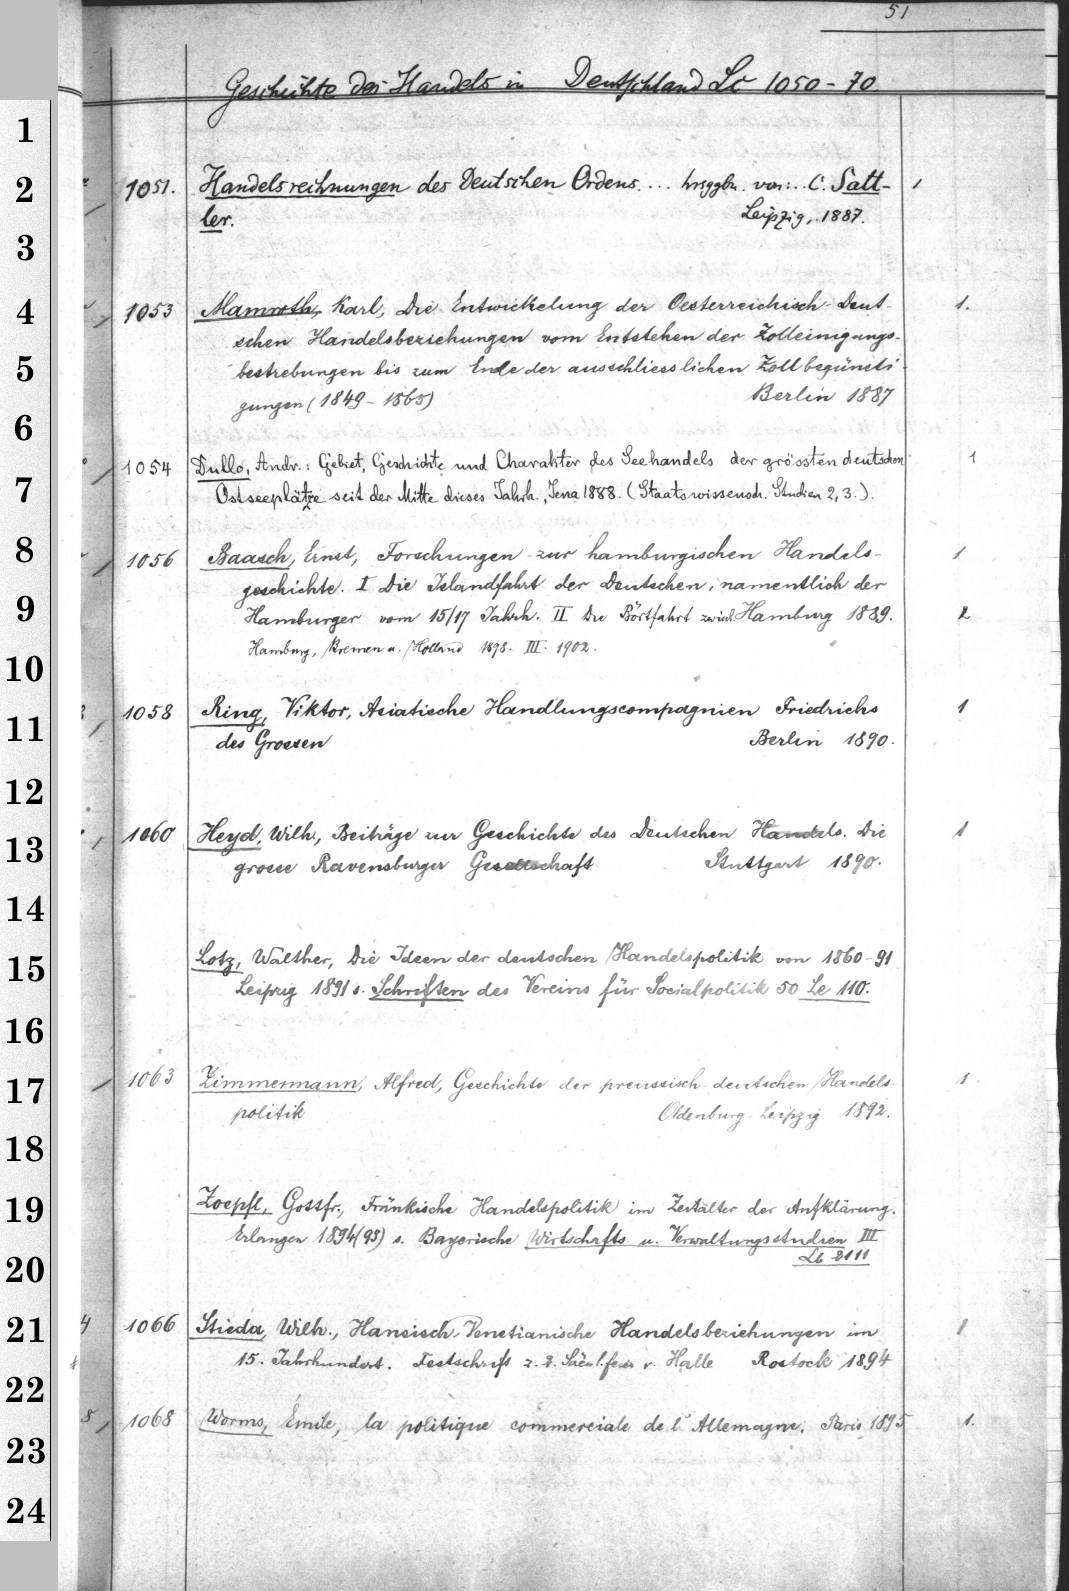 51
Geschichte des Handels in Deutschland Lc 1050-70
1
2 1051. Handelsrechnungen des Deutschen Ordens.... hrsggbn. von:.. C. Satt- 1
ler. Leipzig, 1887.
3
4 1053 Mamroth, Karl, Die Entwickelung der Oesterreichisch-Deut- 1.
schen Handelsbeziehungen vom Entstehen der Zolleinigungs-
5 bestrebungen bis zum Ende der ausschliesslichen Zollbegünsti-
gungen (1849-1865) Berlin 1887
6
1054 Dullo, Andr.: Gebiet, Geschichte und Charakter des Seehandels der grössten deutschen 1
7 Ostseeplätze seit der Mitte dieses Jahrh., Jena 1888. (Staatswissensch. Studien 2, 3.).
8 1056 Baasch, Ernst, Forschungen zur hamburgischen Handels- 1
geschichte. I Die Islandfahrt der Deutschen, namentlich der
9 Hamburger vom 15/17 Jahrh. II Die Börtfahrt zwisch. Hamburg 1889. 2
Hamburg, Bremen u. Holland 1898. III. 1902.
10
11 1058 Ring, Viktor, Asiatische Handlungscompagnien Friedrichs 1
des Grossen Berlin 1890.
12
13 1060 Heyd, Wilh., Beiträge zur Geschichte des Deutschen Handels. Die 1
grosse Ravensburger Gesellschaft Stuttgart 1890.
14
15 Lotz, Walther, Die Ideen der deutschen Handelspolitik von 1860-91
Leipzig 1891 s. Schriften des Vereins für Socialpolitik 50 Le 110.
16
17 1063 Zimmermann, Alfred, Geschichte der preussisch-deutschen Handels- 1.
politik Oldenburg-Leipzig 1892.
18
19 Zoepfl, Gottfr., Fränkische Handelspolitik im Zeitalter der Aufklärung.
Erlangen 1894(93) s. Bayerische Wirtschafts u. Verwaltungsstudien III
20 Lb 2111
21 1066 Stieda, Wilh., Hansisch-Venetianische Handelsbeziehungen im 1
15. Jahrhundert. Festschrift z. 2. Säcul.feier v. Halle Rostock 1894
22
1068 Worms, Émile, la politique commerciale de l'Allemagne. Paris 1895 1.
23
24